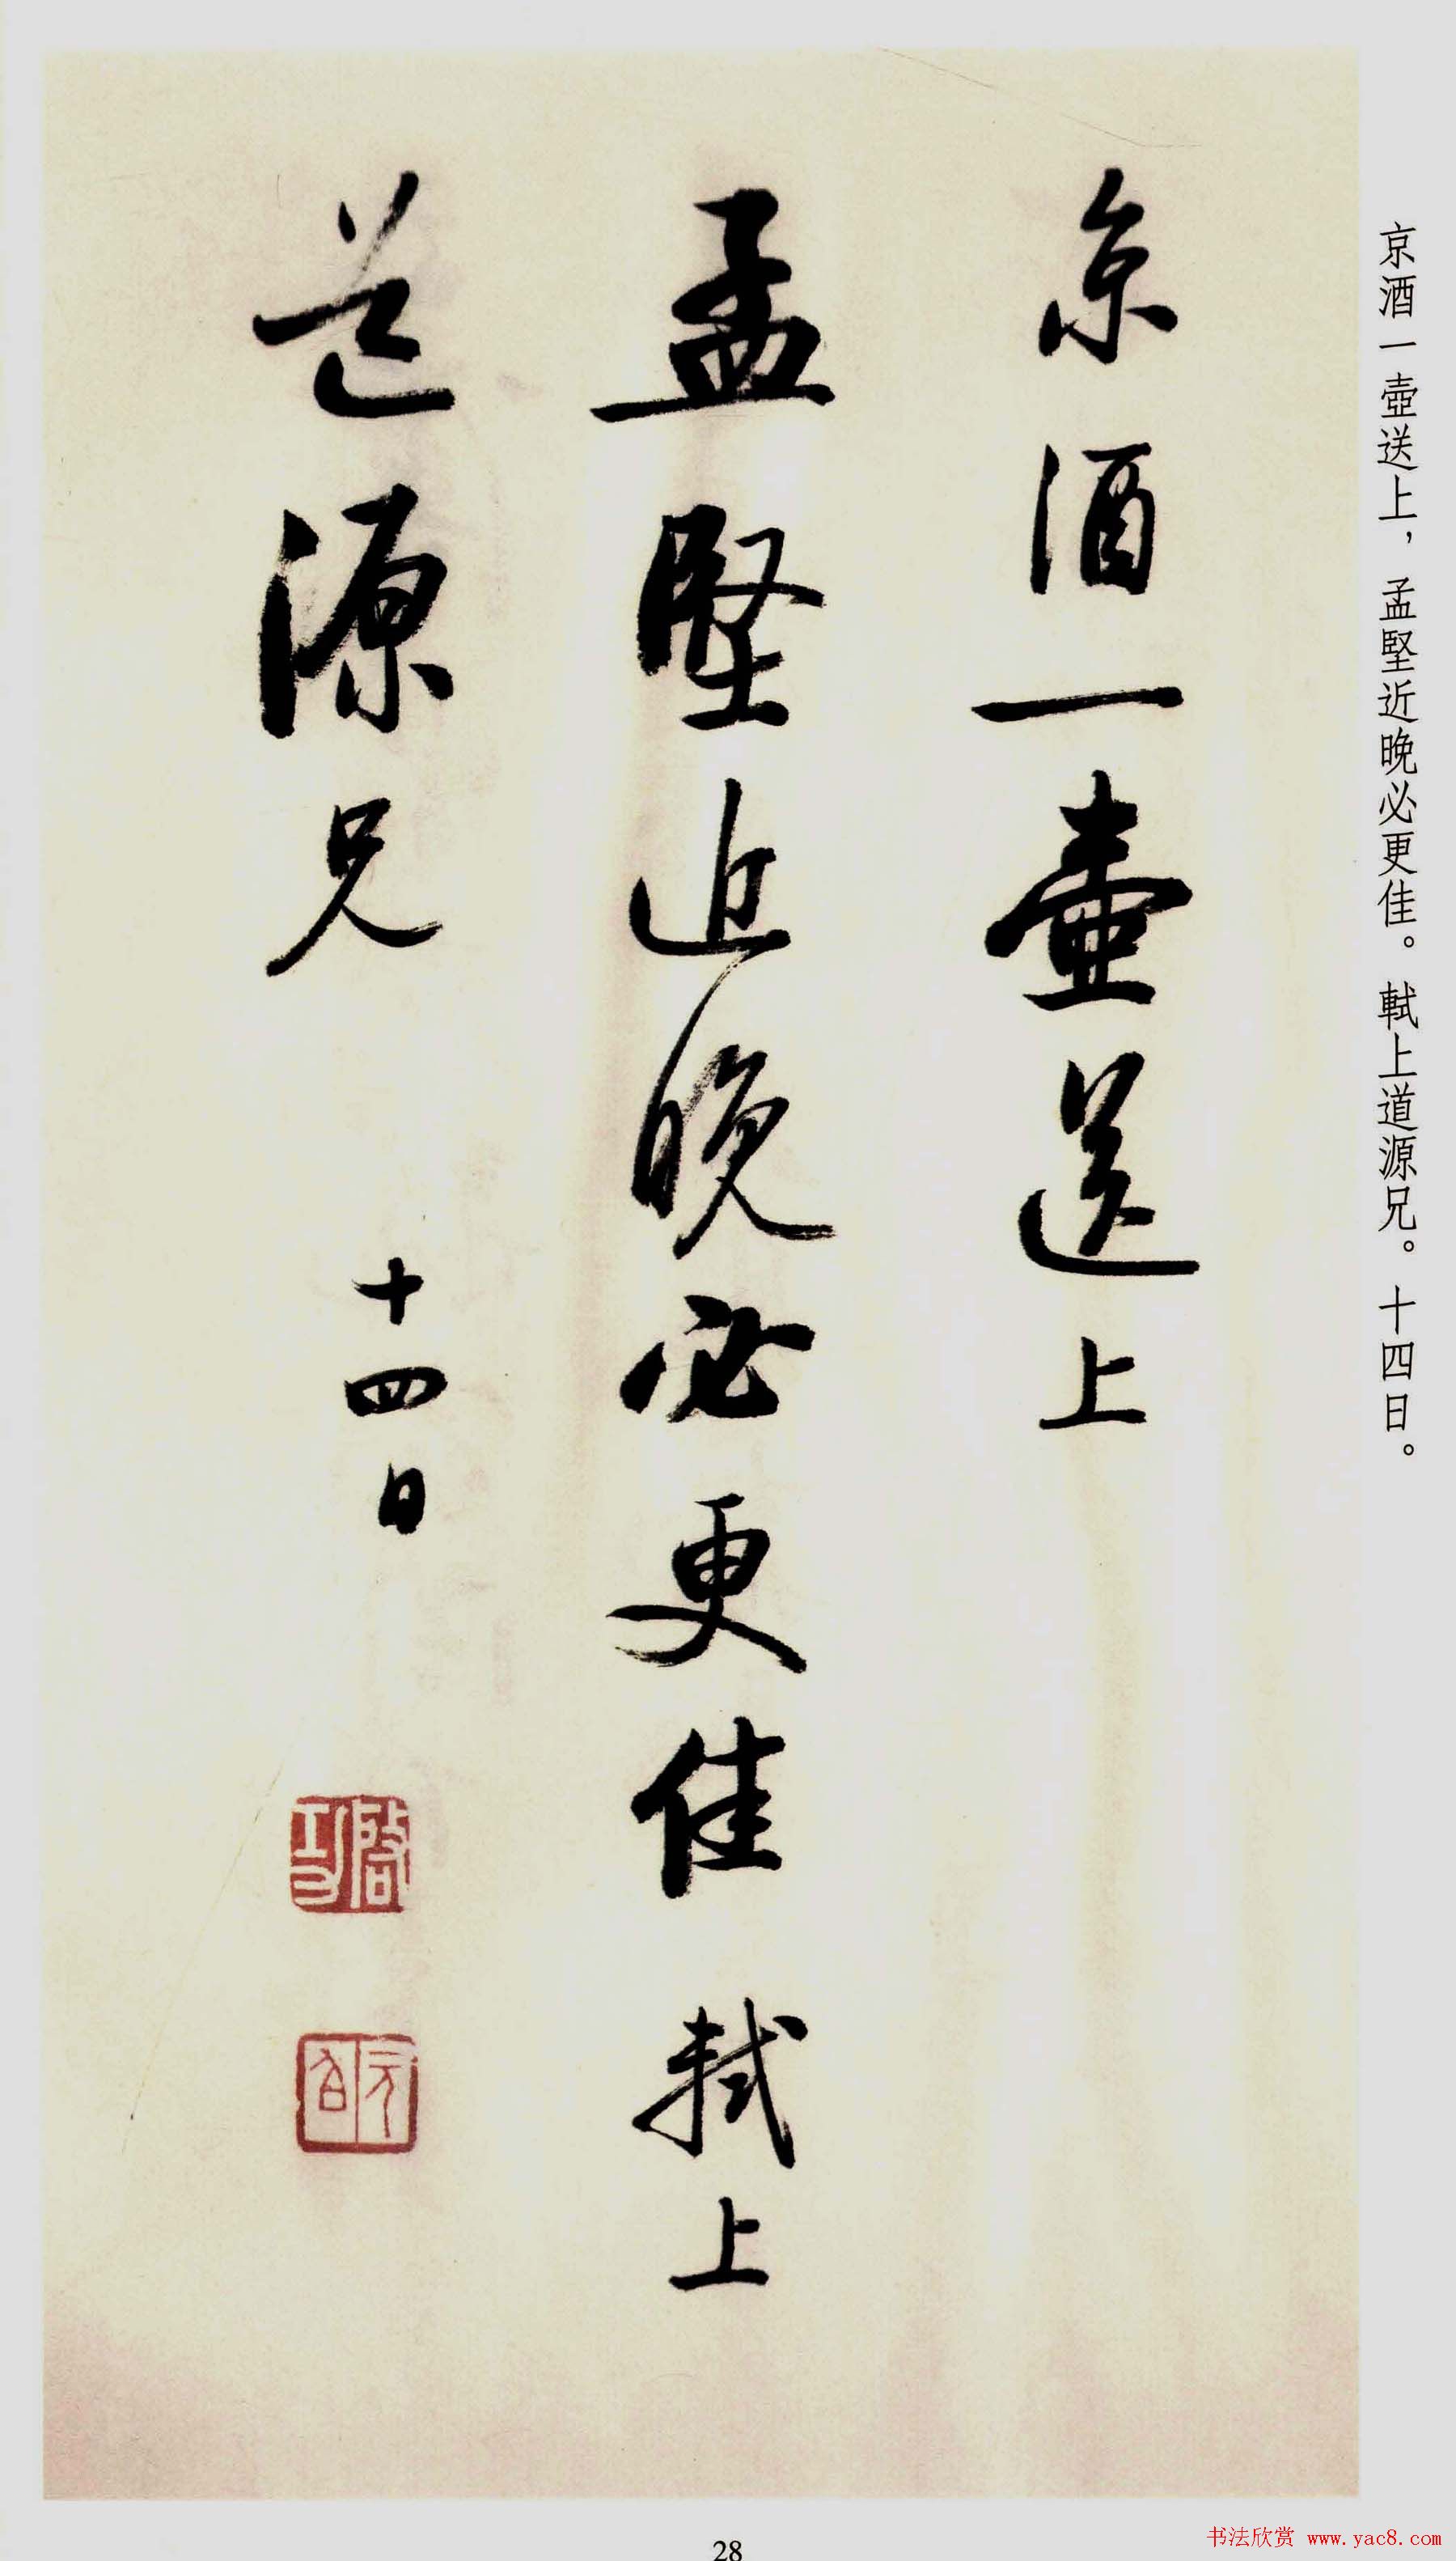 京酒一壺送上，孟堅近晚必更佳。軾上道源兄。十四日。
京酒一壺送上
孟堅近晚必更佳 軾上
道源兄 十四日
啓功
元白
28
书法欣赏 www.yac8.com